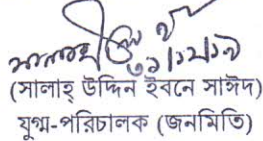 (সালাহ্ উদ্দিন ইবনে সাঈদ)
যুগ্ম-পরিচালক (জনমিতি)